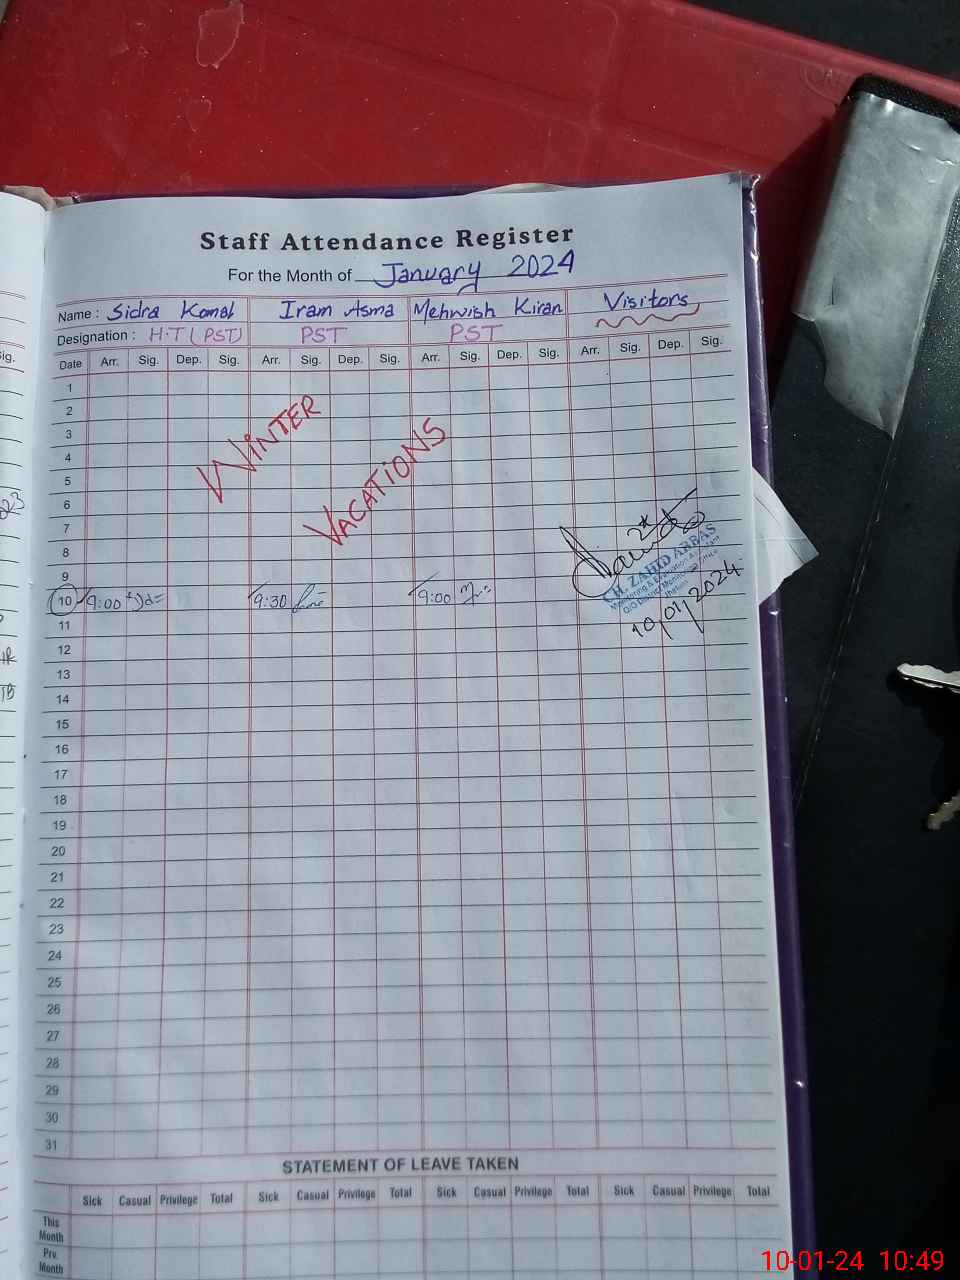 Staff Attendance Register
For the Month of January 2024
Name : Sidra Komal Iram Asma Mehwish Kiran Visitors
Designation : H.T (PST) PST PST
Date Arr. Sig. Dep. Sig. Arr. Sig. Dep. Sig. Arr. Sig. Dep. Sig. Arr. Sig. Dep. Sig.
1
2
3
4
5
6
7
8
9
WINTER
VACATIONS
10 9:00 9:30 9:00
CH. ZAHID ABBAS
10/01/2024
11
12
13
14
15
16
17
18
19
20
21
22
23
24
25
26
27
28
29
30
31
STATEMENT OF LEAVE TAKEN
Sick Casual Privilege Total Sick Casual Privilege Total Sick Casual Privilege Total Sick Casual Privilege Total
This Month
Prv. Month
10-01-24 10:49